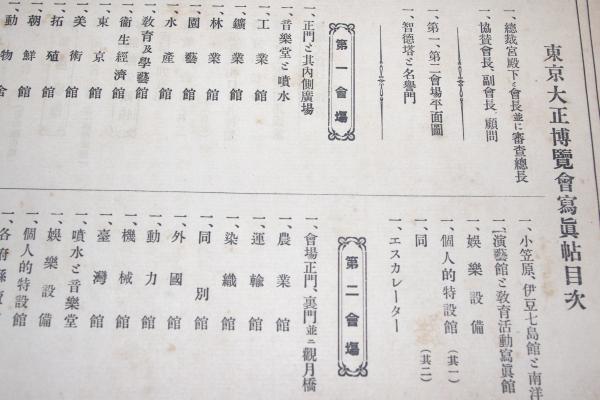 東京大正博覽會寫眞帖目次
一、總裁宮殿下と會長並に審査總長
一、協賛會長、副會長、顧問
一、第一、第二會場平面圖
一、智德塔と名譽門
第一會場
一、正門と其內側廣場
一、音樂堂と噴水
一、工業館
一、鑛業館
一、林業館
一、園藝館
一、水產館
一、敎育及學藝館
一、衞生經濟館
一、東京館
一、美術館
一、拓殖館
一、朝鮮館
一、動物舍
一、小笠原、伊豆七島館と南洋
一、演藝館と敎育活動寫眞館
一、娛樂設備
一、個人的特設館(其一)
一、同(其二)
一、エスカレーター
第二會場
一、會場正門、裏門並ニ觀月橋
一、農業館
一、運輸館
一、染織館
一、同別館
一、外國館
一、動力館
一、機械館
一、臺灣館
一、噴水と音樂堂
一、娛樂設備
一、個人的特設館
一、各府縣賣